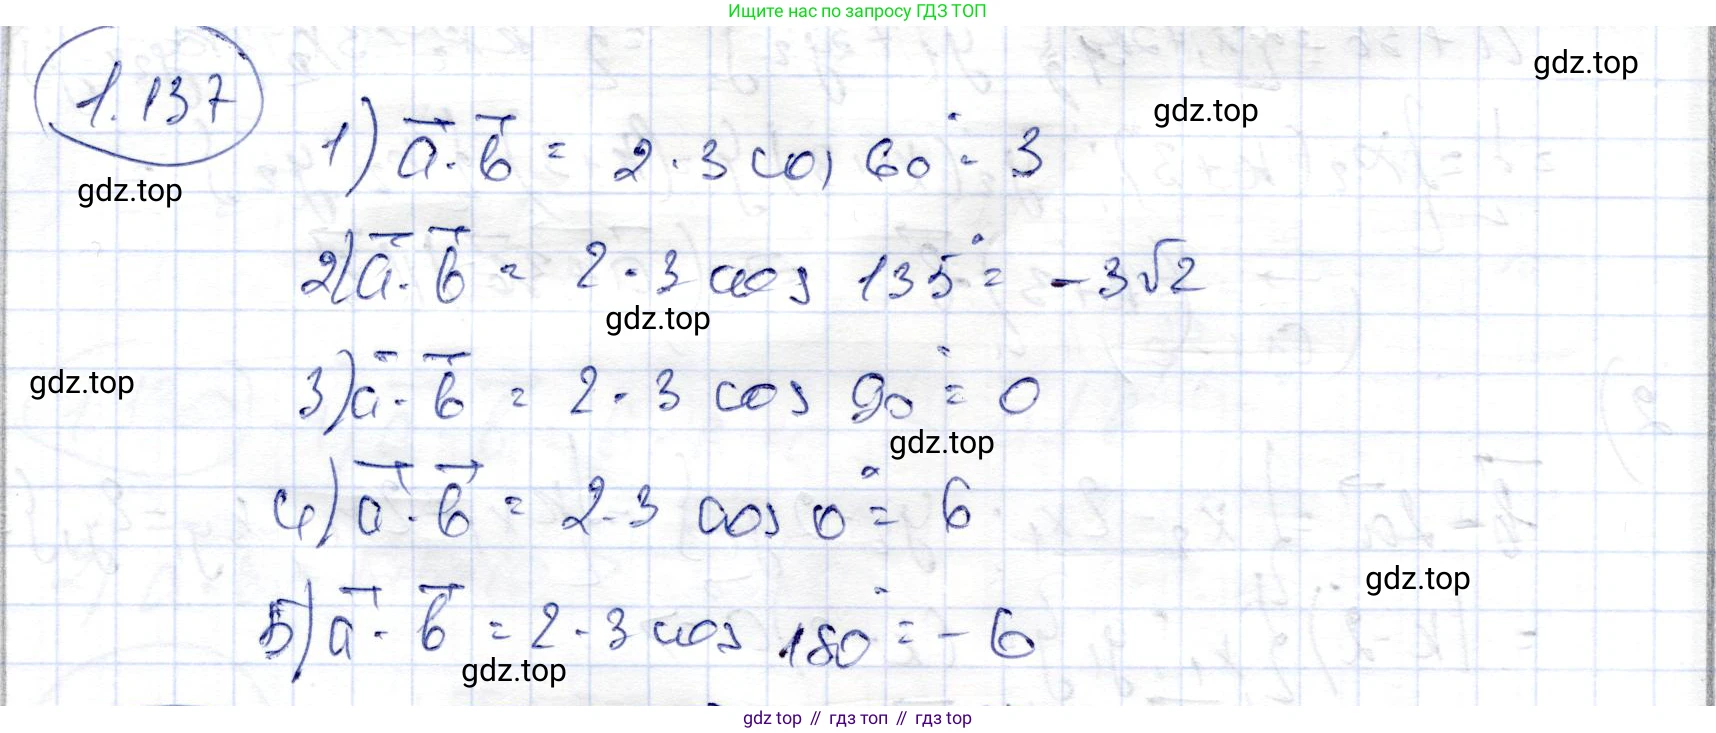 Ищите нас по запросу ГДЗ ТОП
gdz.top
gdz.top
1.137
1) a⃗ · b⃗ = 2 · 3 cos 60° = 3
gdz.top
2) a⃗ · b⃗ = 2 · 3 cos 135° = -3√2
gdz.top
gdz.top
3) a⃗ · b⃗ = 2 · 3 cos 90° = 0
gdz.top
4) a⃗ · b⃗ = 2 · 3 cos 0° = 6
gdz.top
5) a⃗ · b⃗ = 2 · 3 cos 180° = -6
gdz.top
gdz top // гдз топ // gdz top